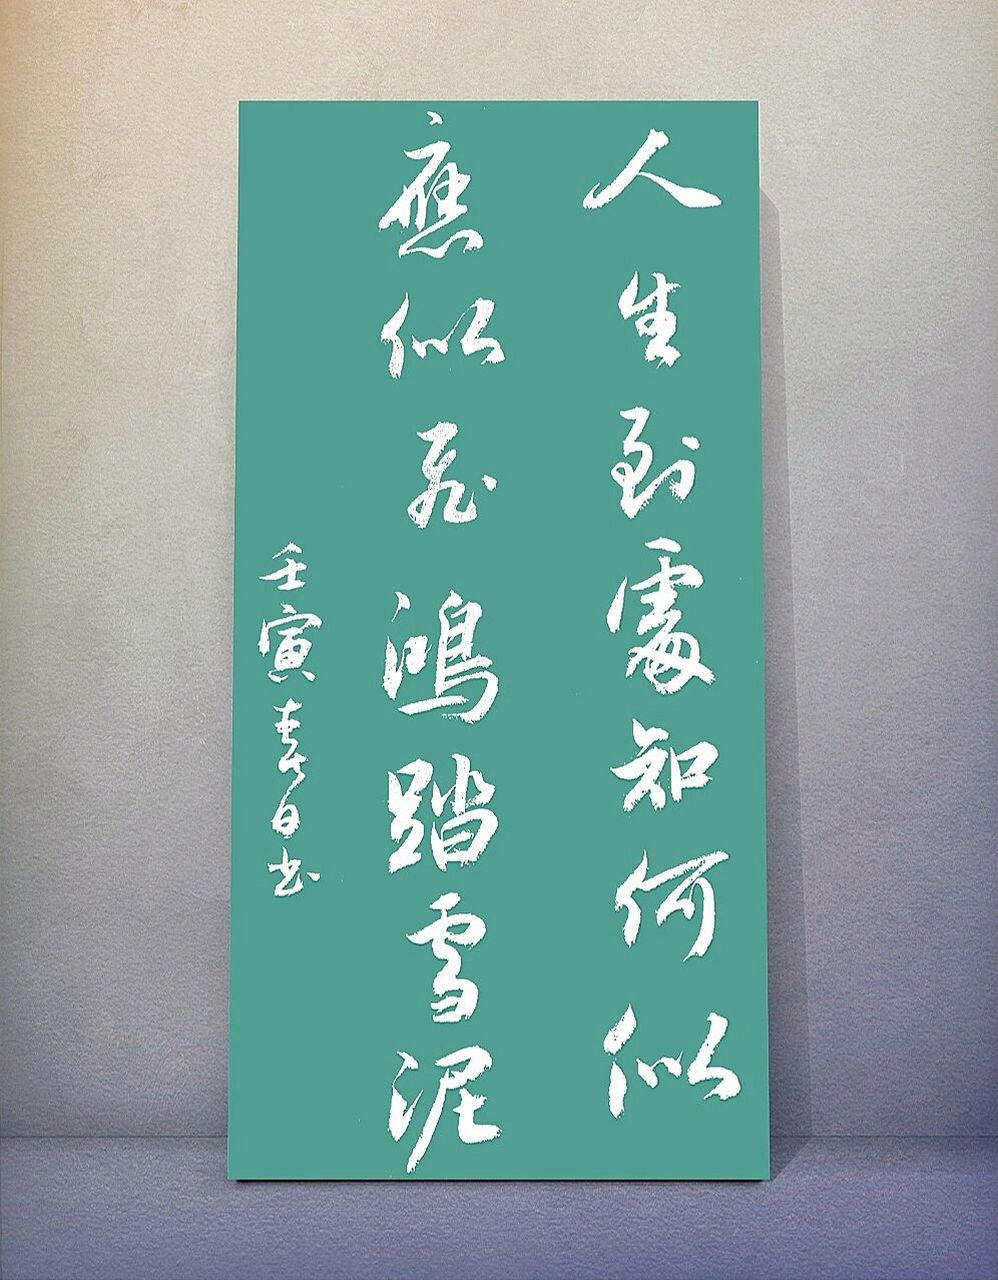 人生到處知何似
應似飛鴻踏雪泥
壬寅春日书